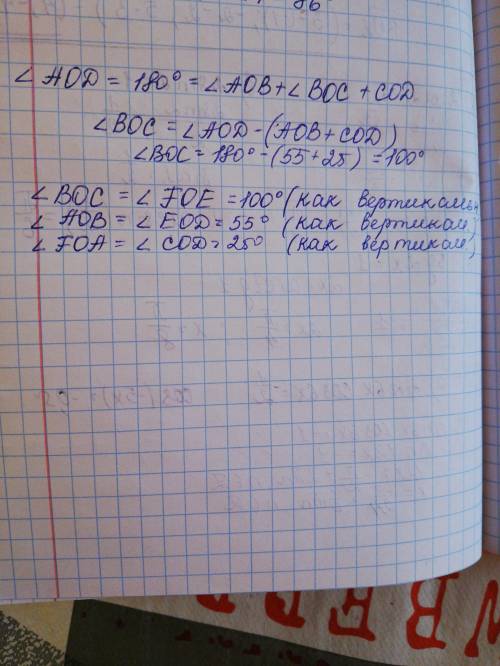 ∠ AOD = 180° = ∠ AOB + ∠ BOC + COD
∠ BOC = ∠ AOD - (AOB + COD)
∠ BOC = 180° - (55 + 25) = 100°
∠ BOC = ∠ FOE = 100° (как вертикальн
∠ AOB = ∠ EOD = 55° (как вертикал)
∠ FOA = ∠ COD = 25° (как вертикал)